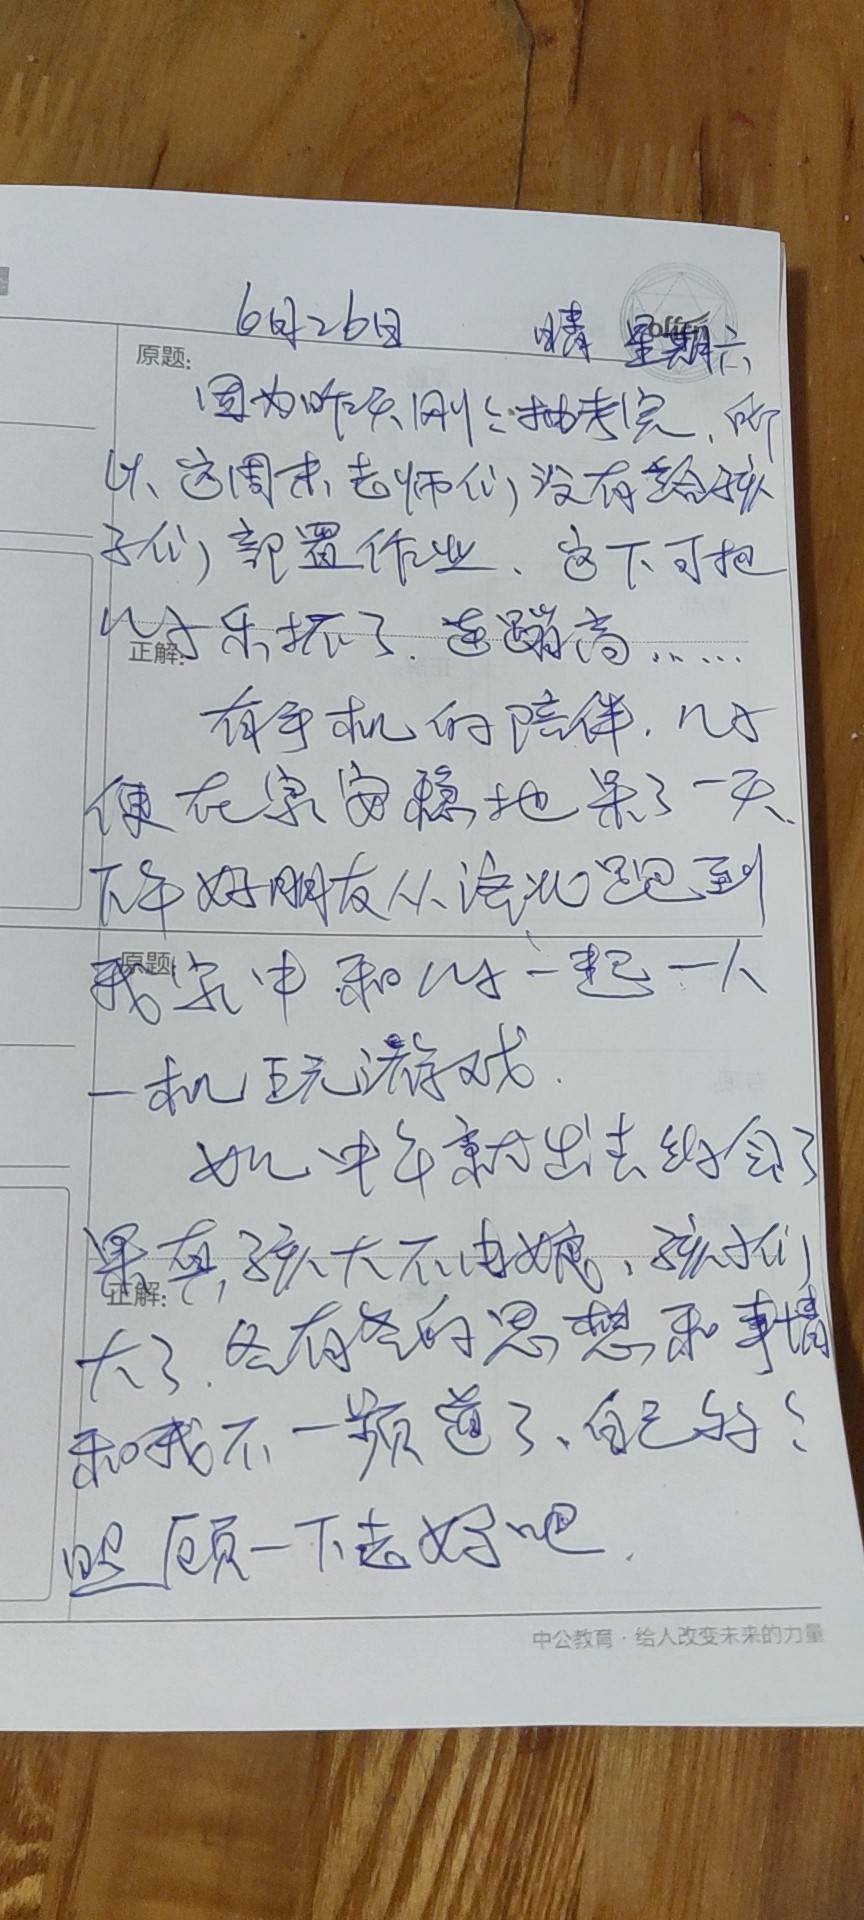 6月26日 晴 星期六
offcn
原题:
因为昨天刚刚抽考完,所
以这周末老师们没有给孩
子们部置作业、这下可把
儿子乐坏了.连蹦高……
正解:
有手机的陪伴.儿子
便在家安稳地呆了一天.
下午好朋友从 跑到
我家中和儿子一起一人
原题:
一机玩游戏.
女儿中午就出去约会了
果真,孩大不由娘、孩子们
正解:
大了.各有各的思想和事情
和我不一频道了、自己好好
照顾一下去好吧.
中公教育·给人改变未来的力量